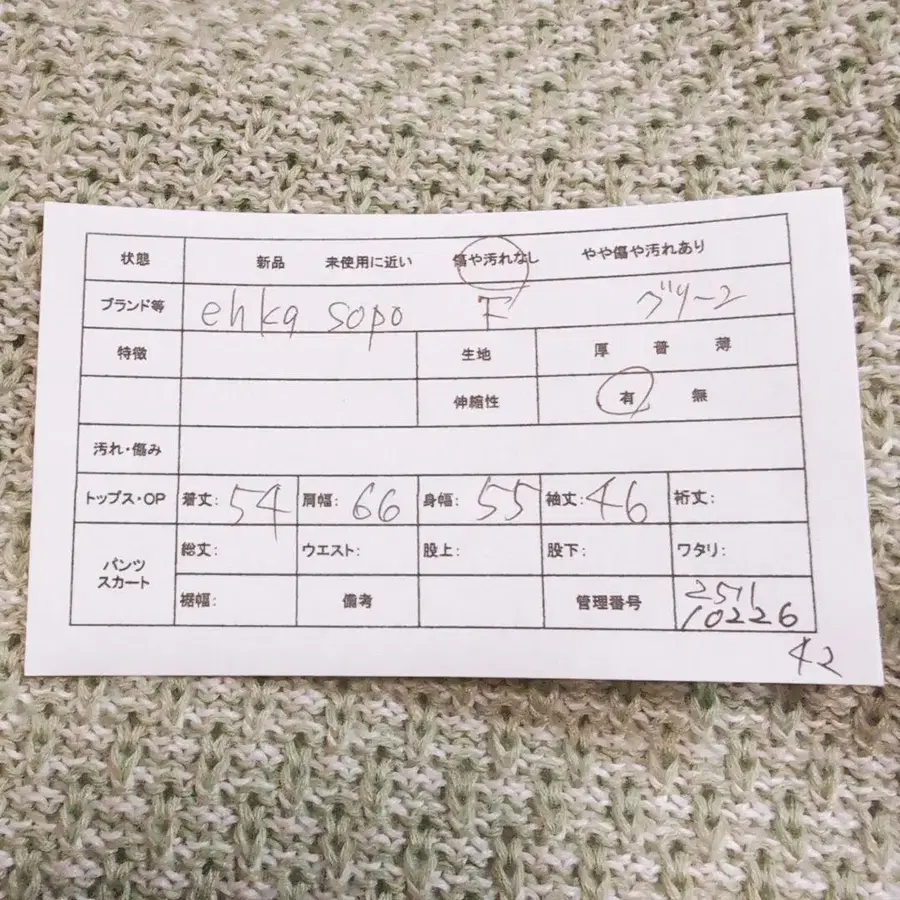 状態 新品 未使用に近い 傷や汚れなし やや傷や汚れあり
ブランド等 ehka sopo F グリーン
特徴 生地 厚 普 薄
伸縮性 有 無
汚れ・傷み
トップス・OP 着丈: 54 肩幅: 66 身幅: 55 袖丈: 46 裄丈:
パンツ スカート 総丈: ウエスト: 股上: 股下: ワタリ:
裾幅: 備考 管理番号 2511
10226
42